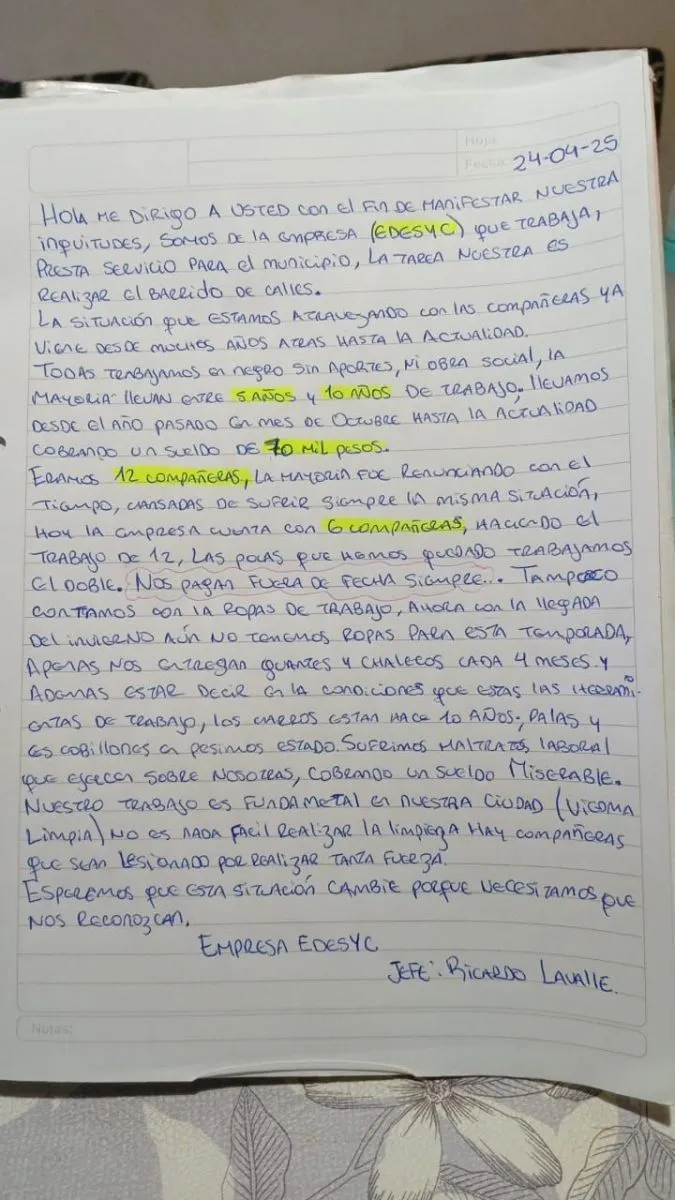 Hoja:
Fecha: 24-04-25
HOLA ME DIRIGO A USTED CON EL FIN DE MANIFESTAR NUESTRA
INQUITUDES, SOMOS DE LA EMPRESA (EDESYC) QUE TRABAJA,
PRESTA SERVICIO PARA EL MUNICIPIO, LA TAREA NUESTRA ES
REALIZAR EL BARRIDO DE CALLES.
LA SITUACIÓN QUE ESTAMOS ATRAVEZANDO CON LAS COMPAÑERAS YA
VIENE DESDE MUCHOS AÑOS ATRAS HASTA LA ACTUALIDAD.
TODAS TRABAJAMOS EN NEGRO SIN APORTES, NI OBRA SOCIAL, LA
MAYORIA LLEVAN ENTRE 5 AÑOS Y 10 AÑOS DE TRABAJO. LLEVAMOS
DESDE EL AÑO PASADO EN MES DE OCTUBRE HASTA LA ACTUALIDAD
COBRANDO UN SUELDO DE 70 MIL PESOS.
ERAMOS 12 COMPAÑERAS, LA MAYORIA FUE RENUNCIANDO CON EL
TIEMPO, CANSADAS DE SUFRIR SIEMPRE LA MISMA SITUACIÓN,
HOY LA EMPRESA CUENTA CON 6 COMPAÑERAS, HACIENDO EL
TRABAJO DE 12, LAS POCAS QUE HEMOS QUEDADO TRABAJAMOS
EL DOBLE. NOS PAGAN FUERA DE FECHA SIEMPRE... TAMPOCO
CONTAMOS CON LA ROPAS DE TRABAJO, AHORA CON LA LLEGADA
DEL INVIERNO AÚN NO TENEMOS ROPAS PARA ESTA TEMPORADA,
APENAS NOS ENTREGAN GUANTES Y CHALECOS CADA 4 MESES. Y
ADEMAS ESTAR DECIR EN LA CONDICIONES QUE ESTAS LAS HERRAMI-
ENTAS DE TRABAJO, LOS CARROS ESTAN HACE 10 AÑOS, PALAS Y
ES COBILLONES EN PESIMOS ESTADO. SUFRIMOS MALTRATOS LABORAL
QUE EJERCEN SOBRE NOSOTRAS, COBRANDO UN SUELDO MISERABLE.
NUESTRO TRABAJO ES FUNDAMETAL EN NUESTRA CIUDAD (VICOMA
LIMPIA) NO ES NADA FACIL REALIZAR LA LIMPIEZA HAY COMPAÑERAS
QUE SEAN LESIONADO POR REALIZAR TANTA FUERZA.
ESPEREMOS QUE ESTA SITUACIÓN CAMBIE PORQUE NECESITAMOS QUE
NOS RECONOZCAN.
EMPRESA EDESYC
JEFE: RICARDO LAVALLE.
Notas: